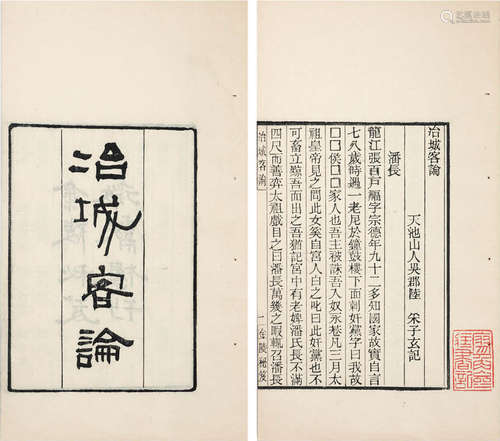 冶城客論
冶城客論
天池山人吳郡陸 采子玄記
潘長
龍江張百戸福字宗德年九十二多知國家故實自言
七八歲時遇一老尼於鐘鼓樓下面刺奸黨字曰我故
□□侯□□家人也吾主被誅吾入奴永巷凡三月太
祖皇帝見之問此女奚自宮人白之叱曰此奸黨也不
可畜立黥吾而出之吾猶記宮中有老婢潘氏長不滿
四尺而善弈太祖戲目之曰潘長萬幾之暇輒召潘長
冶城客論 一